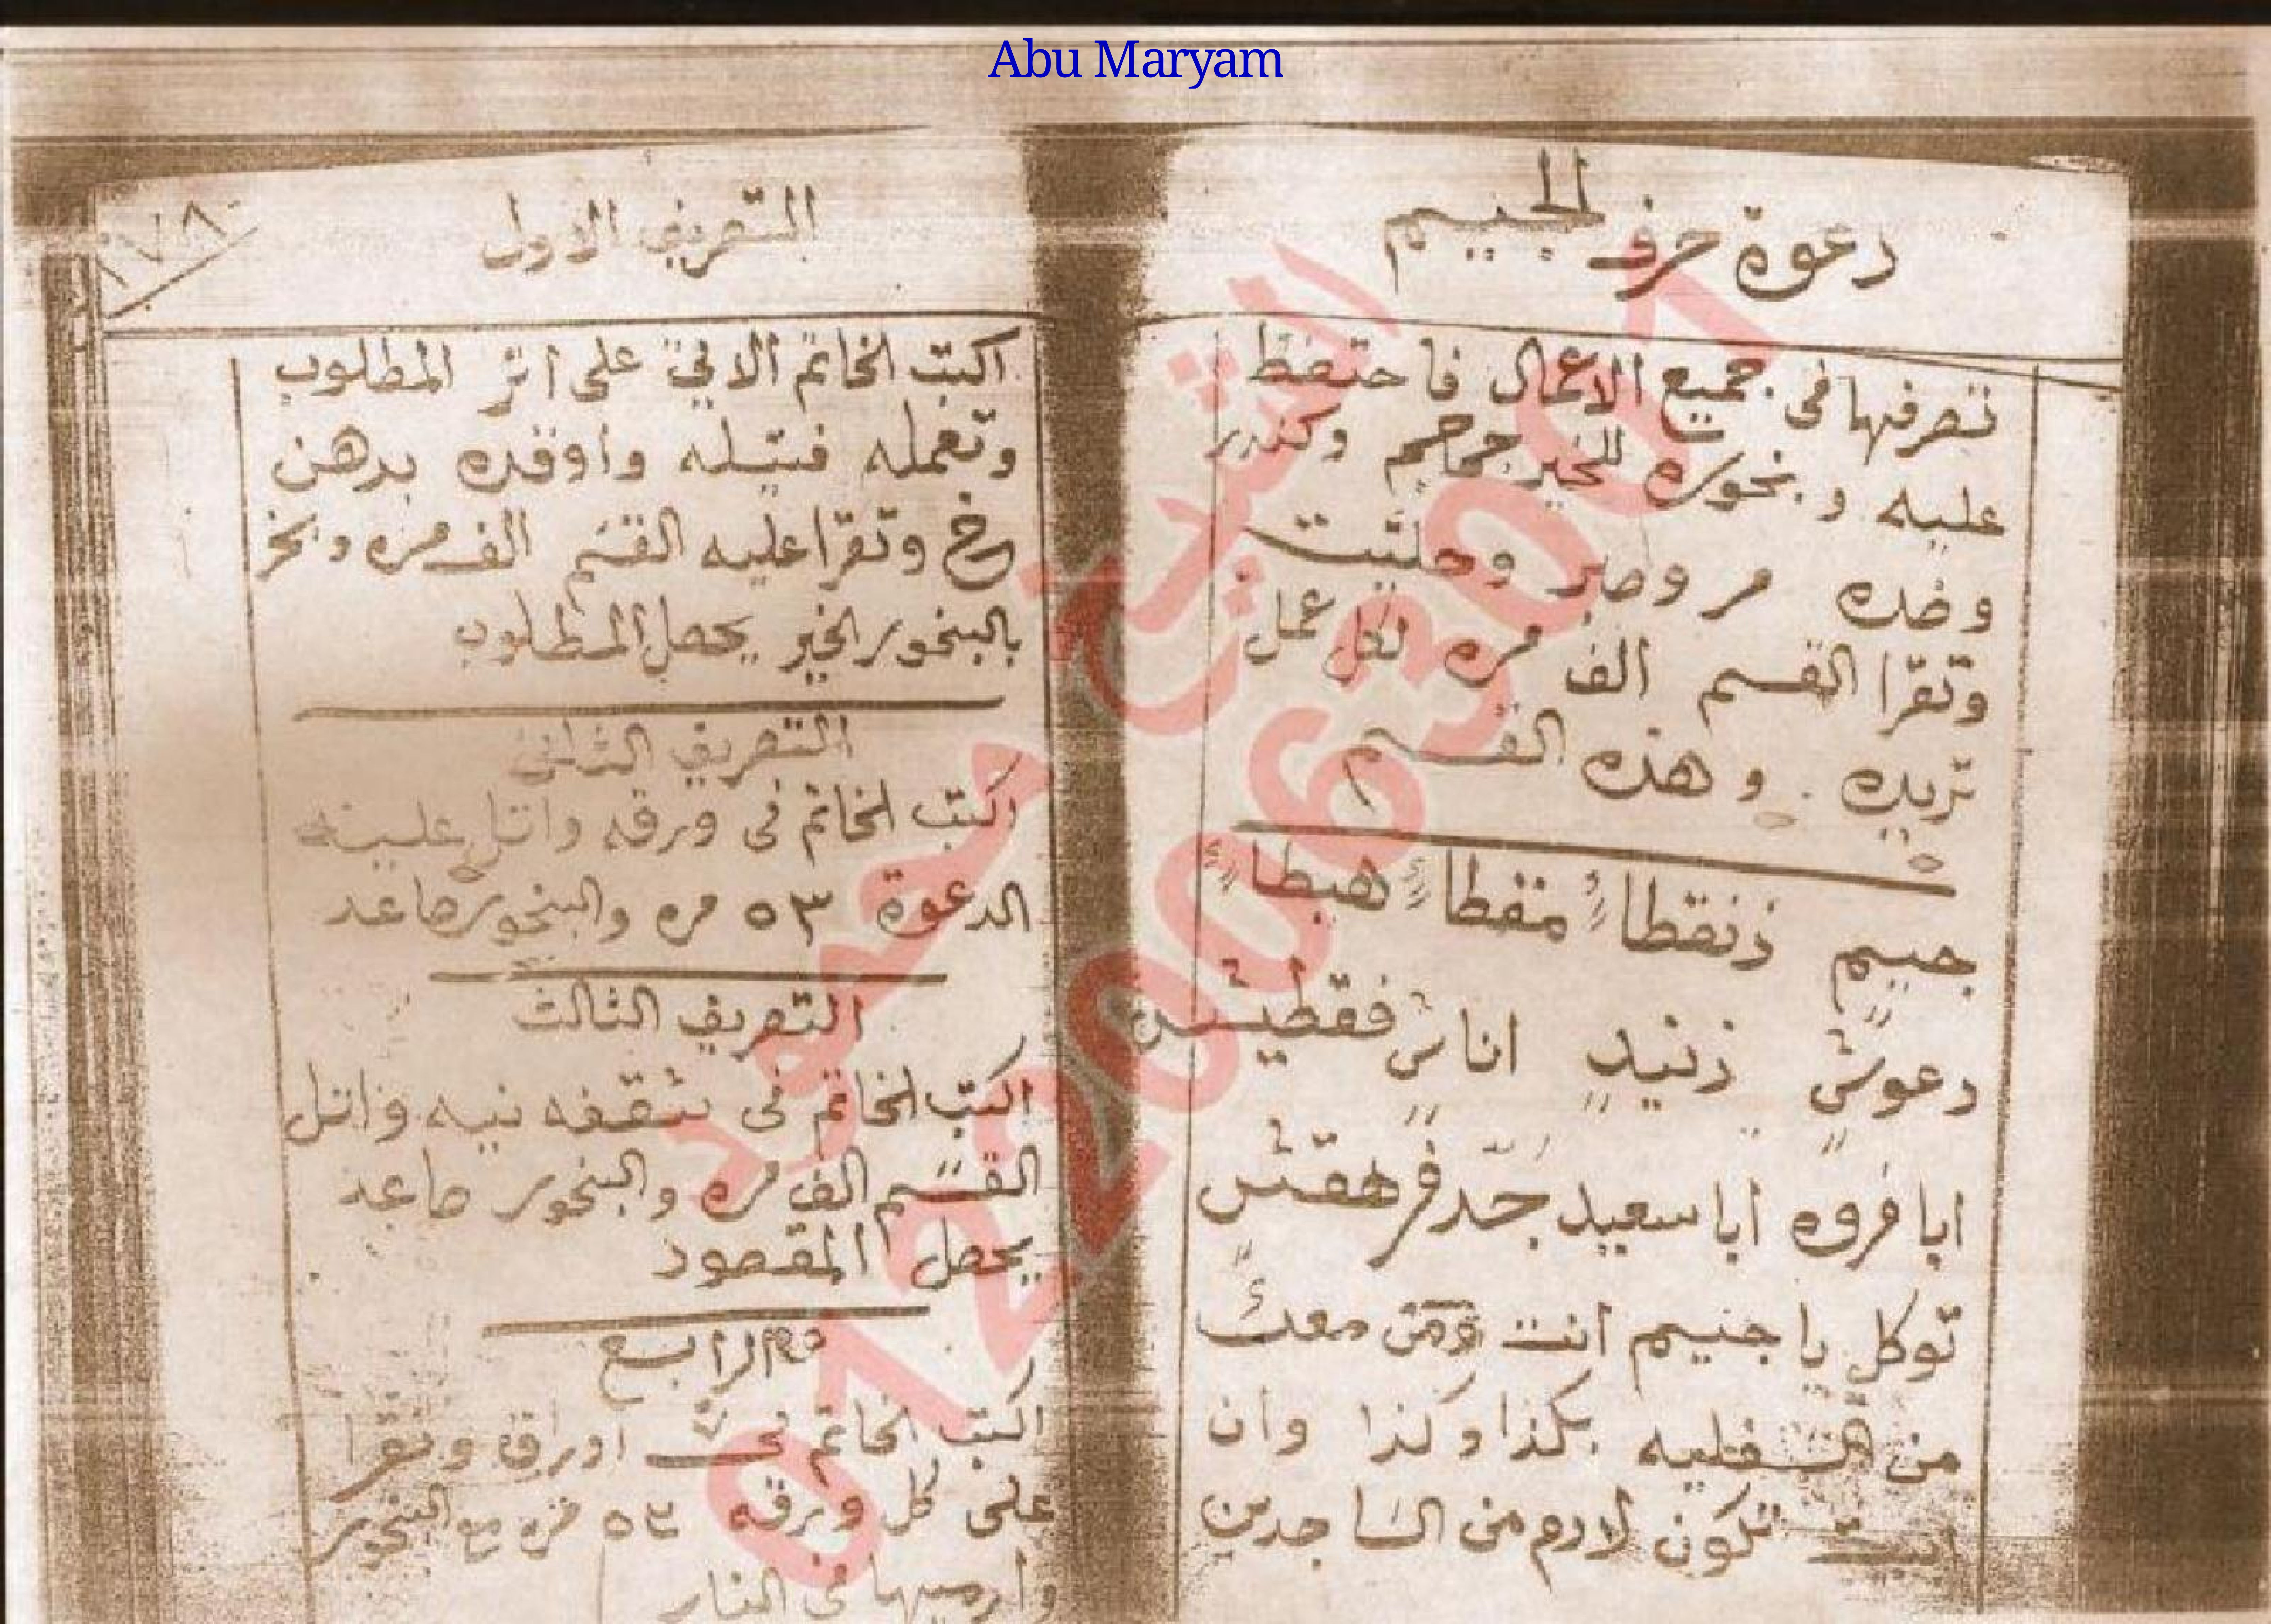 Abu Maryam
دعوة حرف الجيم
تصرفها فى جميع الاعمال فاحتفظ
عليه و بخوره للخير جماجم وكندر
وضده مر وصبر وحلتيت
وتقرا القسم الف مره لكل عمل
تريده وهذه القسم
جيم ذنقطا منقطا هبطا
دعوش زنيد اناش فقطيش
ابا فروه ابا سعيد جد فرهقش
توكل يا جنيم انت ومن معك
من السفليه بكذا وكذا وان
ابيت تكون لادم من الساجدين
١٧٨
التصريف الاول
اكتب الخاتم الاتي على اثر المطلوب
وتعمله فتيله واوقده بدهن
وتقرا عليه القسم الف مره وبخر
بالبخور الخير يحصل المطلوب
التصريف الثانى
اكتب الخاتم فى ورقه واتل عليه
الدعوة ٥٣ مره والبخور صاعد
التصريف الثالث
اكتب الخاتم فى شقفه نيه واتل
القسم الف مره والبخور صاعد
يحصل المقصود
الرابع
اكتب الخاتم فى اوراق وتقرا
على كل ورقه ٥٣ مره مع البخور
وارميها فى النار
الشيخ محمود
0720063001